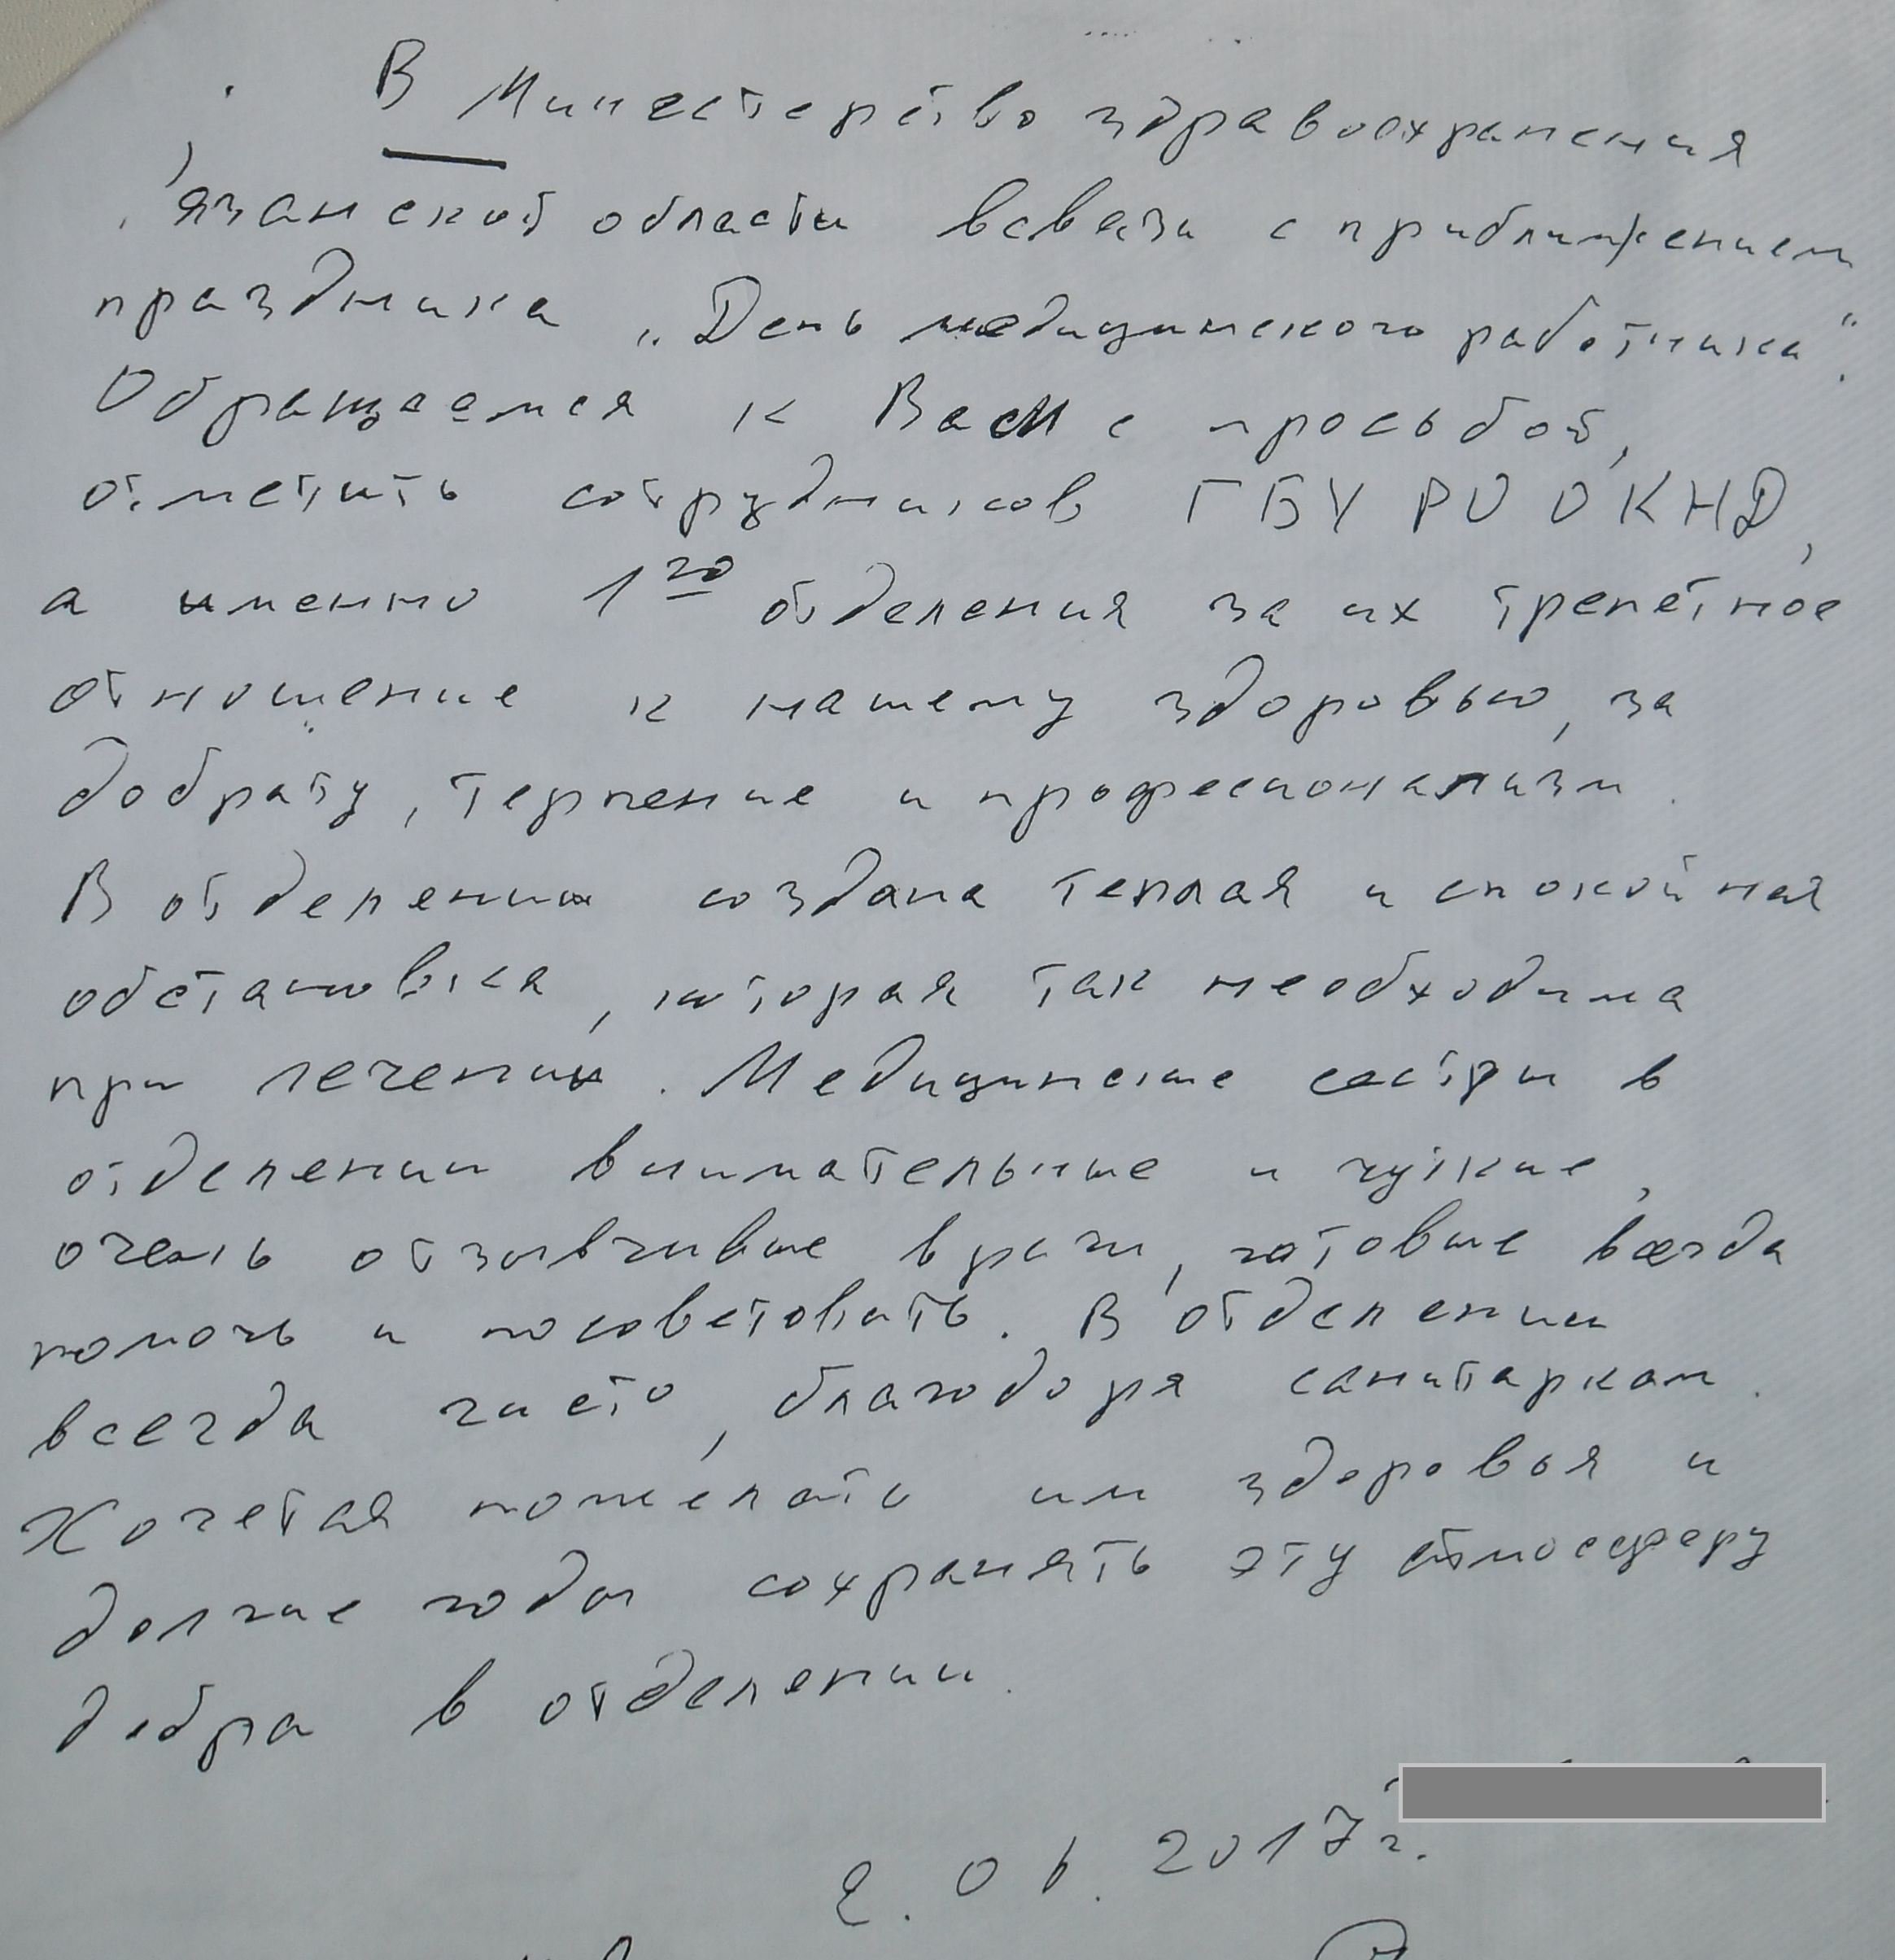 В Минестерство здравоохранения
язанской области всвязи с приближением
праздника „День медицинского работника“.
Обращаемся к Вам с просьбой,
отметить сотрудников ГБУ РО ОКНД,
а именно 1го отделения за их трепетное
отношение к нашему здоровью, за
доброту, терпение и професионализм.
В отделении создана теплая и спокойная
обстановка, которая так необходима
при лечении. Медицинские сестры в
отделении внимательные и чуткие,
очень отзывчивые врачи, готовые всегда
помочь и посоветовать. В отделении
всегда чисто, благодоря санитаркам.
Хочется пожелать им здоровья и
долгие годы сохранять эту атмосферу
добра в отделении.
2.06.2017г.